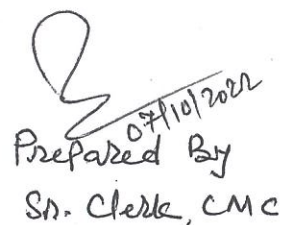 07/10/2022
Prepared By
Sr. Clerk, CMC